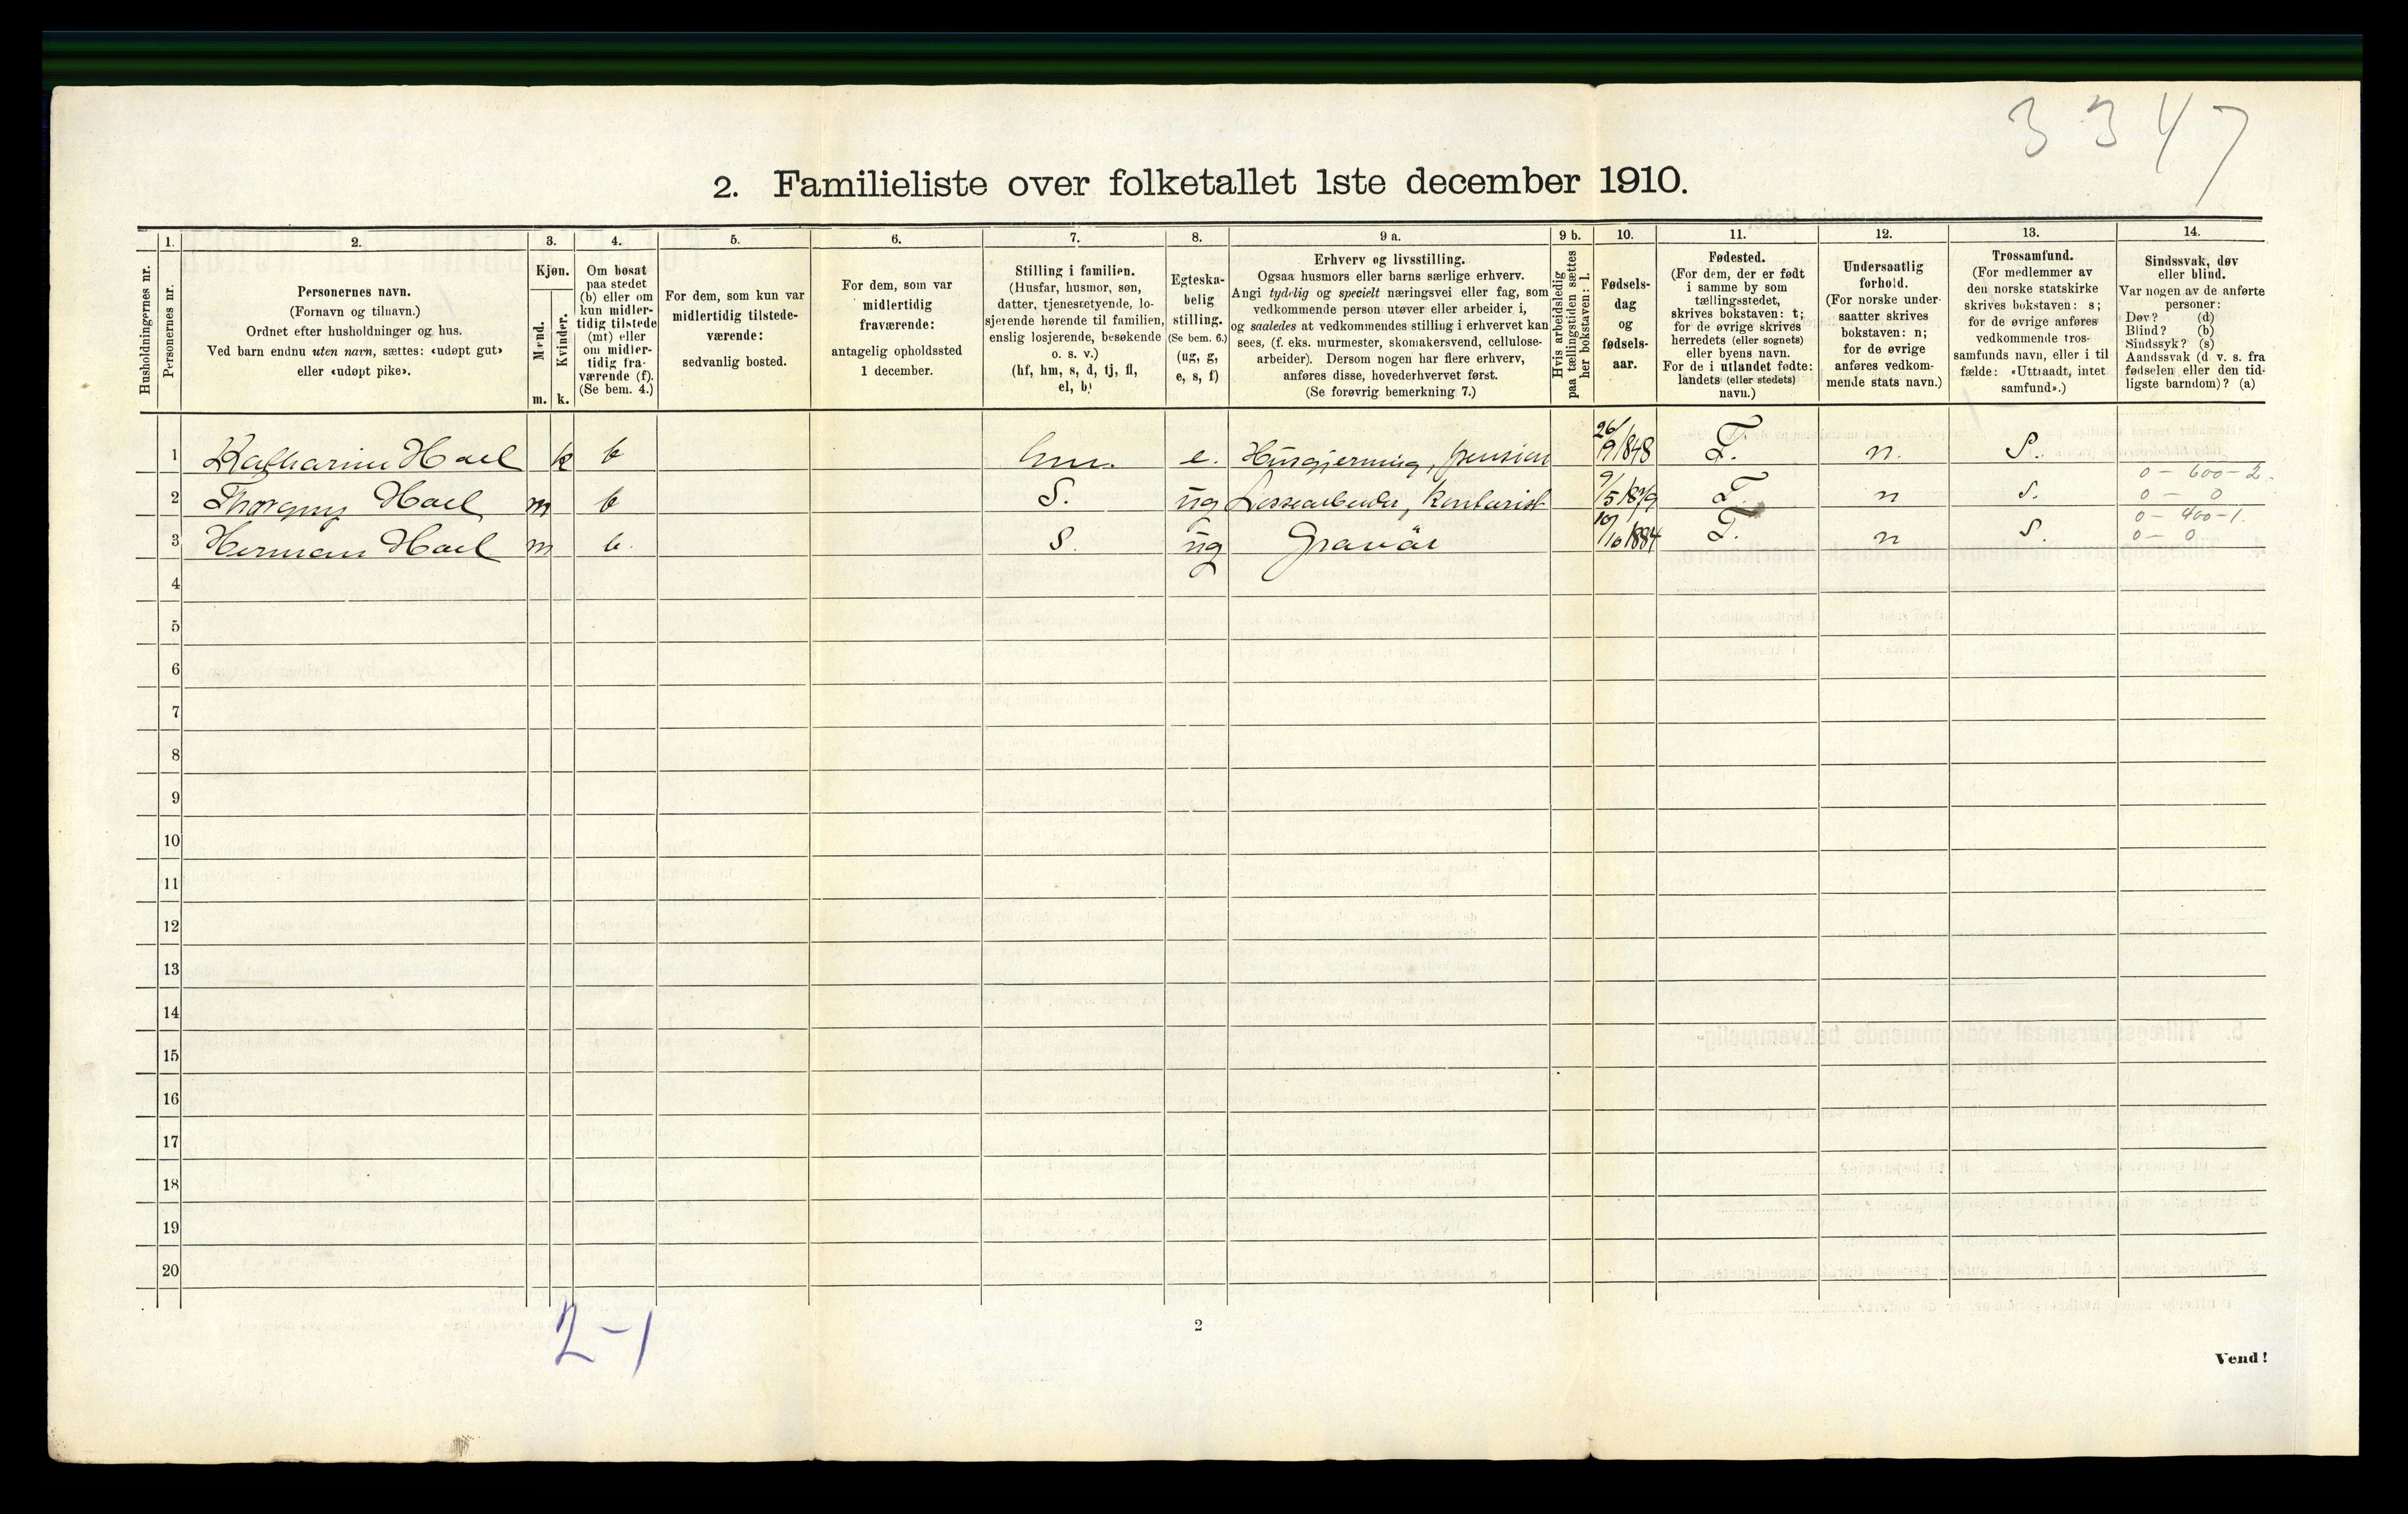 3347
2. Familieliste over folketallet 1ste december 1910.
Husholdningernes nr.
1.
Personernes nr.
2.
Personernes navn.
(Fornavn og tilnavn.)
Ordnet efter husholdninger og hus.
Ved barn endnu uten navn, sættes: «udøpt gut»
eller «udøpt pike».
3.
Kjøn.
Mænd.
Kvinder.
m. k.
4.
Om bosat
paa stedet
(b) eller om
kun midler-
tidig tilstede
(mt) eller
om midler-
tidig fra-
værende (f).
(Se bem. 4.)
5.
For dem, som kun var
midlertidig tilstede-
værende:
sedvanlig bosted.
6.
For dem, som var
midlertidig
fraværende:
antagelig opholdssted
1 december.
7.
Stilling i familien.
(Husfar, husmor, søn,
datter, tjenestetyende, lo-
sjerende hørende til familien,
enslig losjerende, besøkende
o. s. v.)
(hf, hm, s, d, tj, fl,
el, b)
8.
Egteska-
belig
stilling.
(Se bem. 6.)
(ug, g,
e, s, f)
9 a.
Erhverv og livsstilling.
Ogsaa husmors eller barns særlige erhverv.
Angi tydelig og specielt næringsvei eller fag, som
vedkommende person utøver eller arbeider i,
og saaledes at vedkommendes stilling i erhvervet kan
sees, (f. eks. murmester, skomakersvend, cellulose-
arbeider). Dersom nogen har flere erhverv,
anføres disse, hovederhvervet først.
(Se forøvrig bemerkning 7.)
9 b.
Hvis arbeidsledig
paa tællingstiden sættes
her bokstaven: l.
10.
Fødsels-
dag
og
fødsels-
aar.
11.
Fødested.
(For dem, der er født
i samme by som
tællingsstedet,
skrives bokstaven: t;
for de øvrige skrives
herredets (eller sognets)
eller byens navn.
For de i utlandet fødte:
landets (eller stedets)
navn.)
12.
Undersaatlig
forhold.
(For norske under-
saatter skrives
bokstaven: n;
for de øvrige
anføres vedkom-
mende stats navn.)
13.
Trossamfund.
(For medlemmer av
den norske statskirke
skrives bokstaven: s;
for de øvrige anføres
vedkommende tros-
samfunds navn, eller i til
fælde: «Uttraadt, intet
samfund».)
14.
Sindssvak, døv
eller blind.
Var nogen av de anførte
personer:
Døv? (d)
Blind? (b)
Sindssyk? (s)
Aandssvak (d v. s. fra
fødselen eller den tid-
ligste barndom)? (a)
1 Katharine Hael k b hm. e. Husgjerning, pension 26/9 1848 T. n. S.
0 - 600 - 2.
2 Thorgny Hael m b S. ug kontorist n S. 0 - 0
0 - 400 - 1.
3 Herman Hael m b. S. ug Gravør 10/10 1884 T. n S. 0 - 0
4
5
6
7
8
9
10
11
12
13
14
15
16
17
18
19
20
2-1
2
Vend!